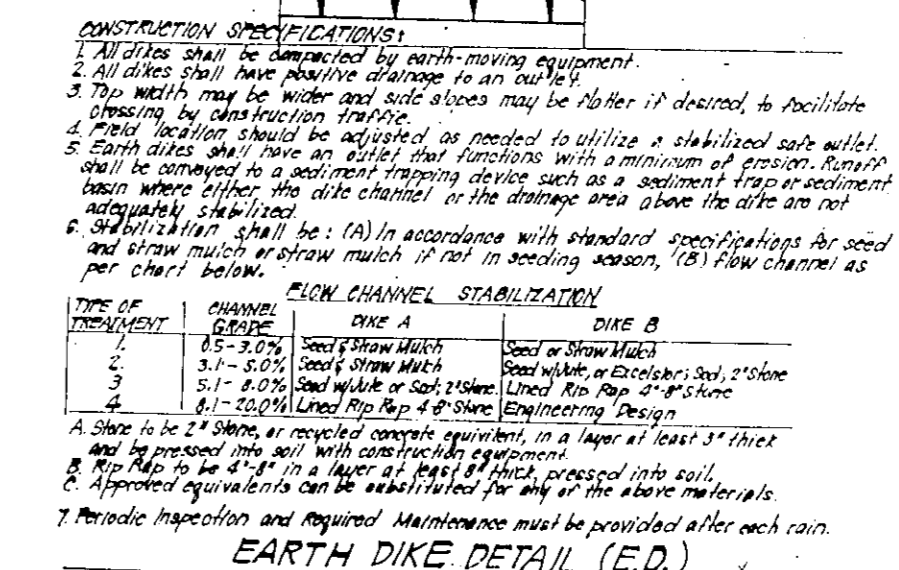 CONSTRUCTION SPECIFICATIONS:
1. All dikes shall be compacted by earth-moving equipment.
2. All dikes shall have positive drainage to an outlet.
3. Top width may be wider and side slopes may be flatter if desired, to facilitate
crossing by construction traffic.
4. Field location should be adjusted as needed to utilize a stabilized safe outlet.
5. Earth dikes shall have an outlet that functions with a minimum of erosion. Runoff
shall be conveyed to a sediment trapping device such as a sediment trap or sediment
basin where either the dike channel or the drainage area above the dike are not
adequately stabilized.
6. Stabilization shall be: (A) In accordance with standard specifications for seed
and straw mulch or straw mulch if not in seeding season, (B) flow channel as
per chart below.
FLOW CHANNEL STABILIZATION
TYPE OF TREATMENT CHANNEL GRADE DIKE A DIKE B
1. 0.5-3.0% Seed & Straw Mulch Seed or Straw Mulch
2. 3.1-5.0% Seed & Straw Mulch Seed w/Jute, or Excelsior; Sod; 2" Stone
3 5.1-8.0% Seed w/Jute or Sod; 2" Stone Lined Rip Rap 4"-8" Stone
4 8.1-20.0% Lined Rip Rap 4-8" Stone Engineering Design
A. Stone to be 2" Stone, or recycled concrete equivilent, in a layer at least 3" thick
and be pressed into soil with construction equipment.
B. Rip Rap to be 4"-8" in a layer at least 8" thick, pressed into soil.
C. Approved equivalents can be substituted for any of the above materials.
7. Periodic Inspection and Required Maintenance must be provided after each rain.
EARTH DIKE DETAIL (E.D.)